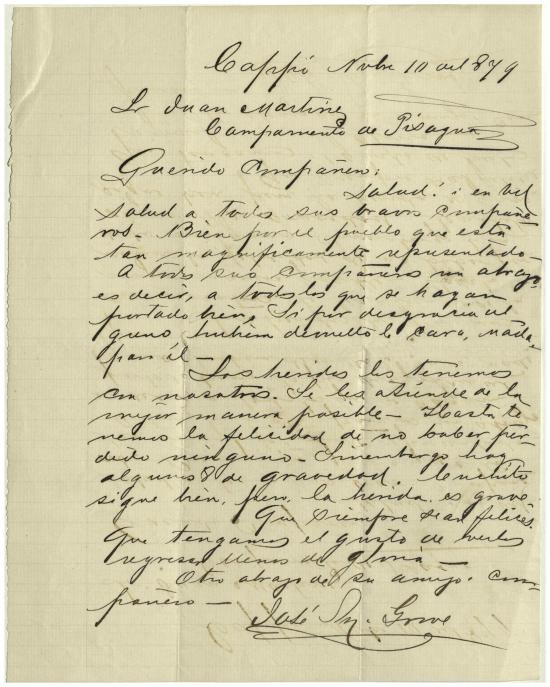 Coppó Nvbe 10 del 879
Sr Juan Martinez
Campamento de Pisagua
Querido Compañero:
Salud! i en Ud
salud a todos sus bravos compañe-
ros. Bien por el pueblo que está
tan magnificamente representado.
A todos sus compañeros un abrazo
es decir, a todos los que se hayan
portado bien. Si por desgracia al
guno hubiera devuelto la cara, nada
para él—
Los heridos los tenemos
con nosotros. Se les atiende de la
mejor manera posible— Hasta te
nemos la felicidad de no haber per-
dido ninguno. Sinembargo hay
algunos 8 de gravedad. Luchito
sigue bien, pero la herida es grave
Que siempre sean felices.
Que tengamos el gusto de verlos
regresar llenos de gloria—
Otro abrazo de su amigo i com-
pañero—
José M. Grove